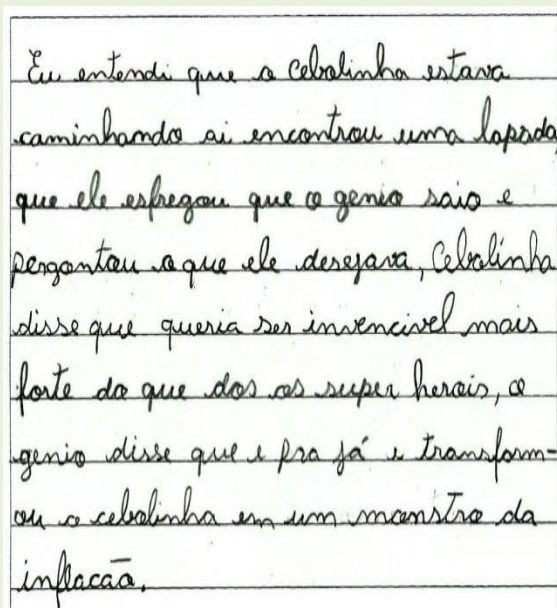 Eu entendi que o cebolinha estava
caminhando ai encontrou uma lapada,
que ele esfregou que o genio saio e
pergontou o que ele desejava, Cebolinha
disse que queria ser invencivel mais
forte do que dos os super herois, o
genio disse que e pra já e transform-
ou o cebolinha em um monstro da
inflacão.